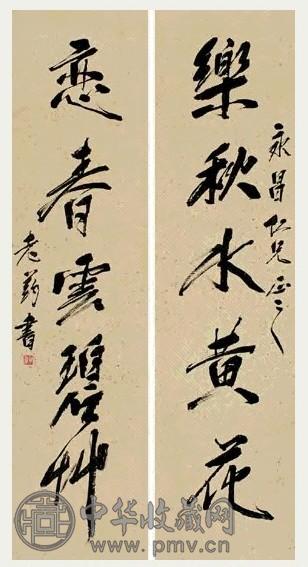 樂秋水黄花
永昌仁兄正之
戀春雲碧艸
老药書
中华收藏网
www.pmv.cn